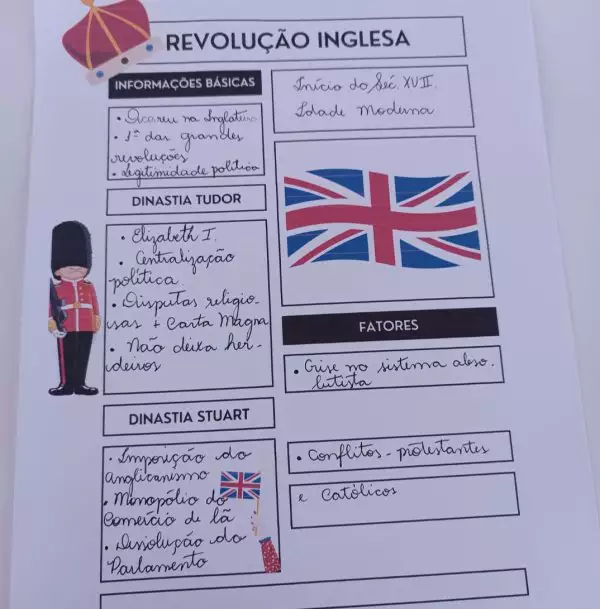 REVOLUÇÃO INGLESA
INFORMAÇÕES BÁSICAS
• Ocorreu na Inglaterra
• 1ª das grandes
revoluções
• Legitimidade política
Início do Séc. XVII.
Idade Moderna
DINASTIA TUDOR
• Elizabeth I.
• Centralização
política
• Disputas religio-
sas + Carta Magna
• Não deixa her-
deiros
FATORES
• Crise no sistema abso-
lutista
DINASTIA STUART
• Imposição do
anglicanismo
• Monopólio do
Comércio de lã
• Dissolução do
Parlamento
• Conflitos - protestantes
e Católicos